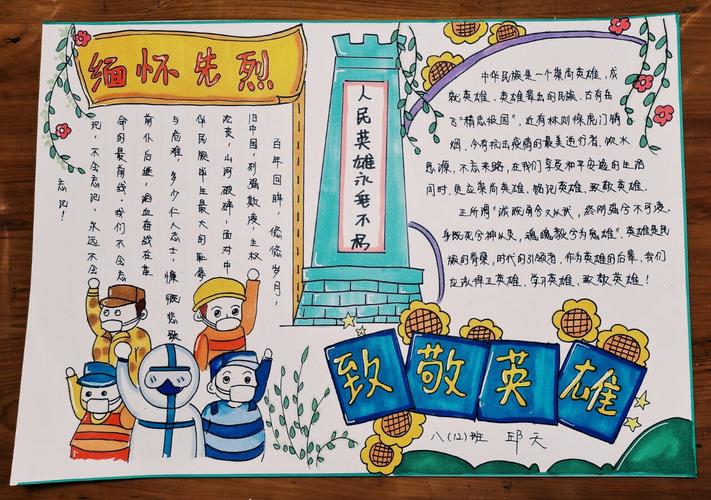 缅怀先烈
百年回眸，悠悠岁月，
旧中国，列强欺凌，主权
沦丧，山河破碎，面对中
华民族毕生最大的耻辱
与危难，多少仁人志士，慷慨悲歌
前仆后继，浴血奋战在革
命的最前线。我们不会忘
记，不会忘记，永远不会
忘记！
人民英雄永垂不朽
中华民族是一个崇尚英雄，成
就英雄，英雄辈出的民族，古有岳
飞“精忠报国”，近有林则徐虎门销
烟，今有抗击疫情的最美逆行者，饮水
思源，不忘来路，在我们享受和平安逸的生活
同时，更应崇尚英雄，铭记英雄，致敬英雄。
正所谓“诚既勇兮又以武，终刚强兮不可凌，
身既死兮神以灵，魂魄毅兮为鬼雄”。英雄是民
族的脊梁，时代的引领者，作为英雄的后辈，我们
应该捍卫英雄，学习英雄，致敬英雄！
致敬英雄
八(12)班 邱天